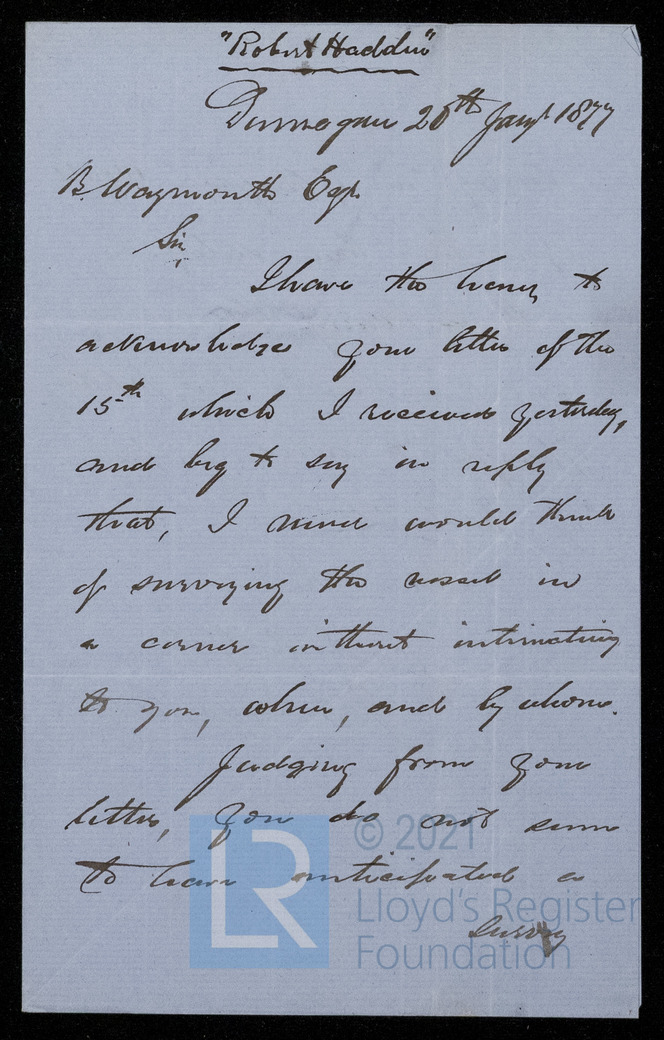 "Robert Haddin"
20th Jany 1877
B. Waymouth Esqr
Sir
I have the honor to
acknowledge your letter of the
15th which I received yesterday,
and beg to say in reply
that, I never would think
of surveying the vessel in
a corner without intimating
to you, when, and by whom.
Judging from your
letter, you do not seem
to have anticipated a
survey
LR
© 2021
Lloyd's Register
Foundation